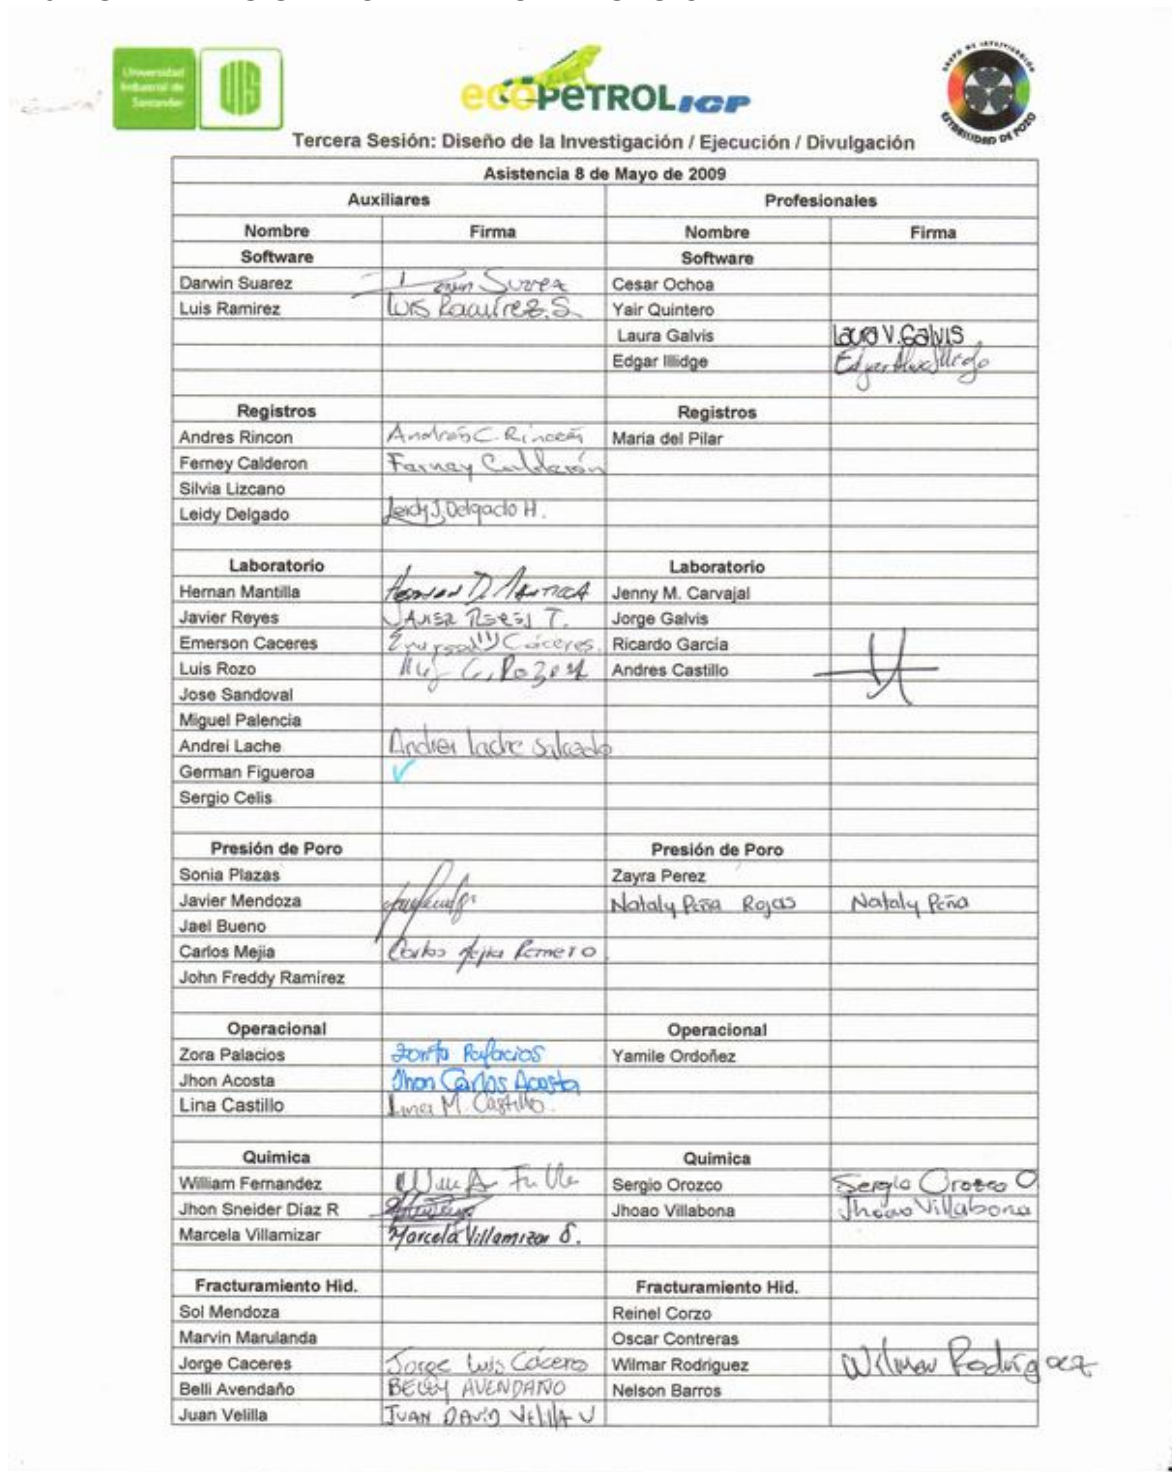 Universidad
Industrial de
Santander
UIS
ecopetrol ICP
GRUPO DE INVESTIGACIÓN
ESTABILIDAD DE POZO
Tercera Sesión: Diseño de la Investigación / Ejecución / Divulgación
Asistencia 8 de Mayo de 2009
Auxiliares Profesionales
Nombre Firma Nombre Firma
Software Software
Darwin Suarez Suarez Cesar Ochoa
Luis Ramirez Luis Ramirez.S. Yair Quintero
Laura Galvis Laura V. Galvis
Edgar Illidge Edgar
Registros Registros
Andres Rincon Andrés C. Rincón Maria del Pilar
Ferney Calderon Ferney Calderón
Silvia Lizcano
Leidy Delgado Leidy J. Delgado H.
Laboratorio Laboratorio
Hernan Mantilla Hernan D. Jenny M. Carvajal
Javier Reyes Javier Reyes T. Jorge Galvis
Emerson Caceres Cáceres. Ricardo García
Luis Rozo Andres Castillo
Jose Sandoval
Miguel Palencia
Andrei Lache Andrei Lache Salcedo
German Figueroa ✓
Sergio Celis
Presión de Poro Presión de Poro
Sonia Plazas Zayra Perez
Javier Mendoza Nataly Peña Rojas Nataly Peña
Jael Bueno
Carlos Mejia Carlos Mejia Romero
John Freddy Ramírez
Operacional Operacional
Zora Palacios Palacios Yamile Ordoñez
Jhon Acosta Jhon Carlos Acosta
Lina Castillo Lina M. Castillo.
Quimica Quimica
William Fernandez Sergio Orozco Sergio Orozco O
Jhon Sneider Díaz R Jhoao Villabona Jhoao Villabona
Marcela Villamizar Marcela Villamizar S.
Fracturamiento Hid. Fracturamiento Hid.
Sol Mendoza Reinel Corzo
Marvin Marulanda Oscar Contreras
Jorge Caceres Jorge Luis Cáceres Wilmar Rodriguez Wilmar Rodríguez
Belli Avendaño BELLY AVENDAÑO Nelson Barros
Juan Velilla JUAN DAVID VELILLA U